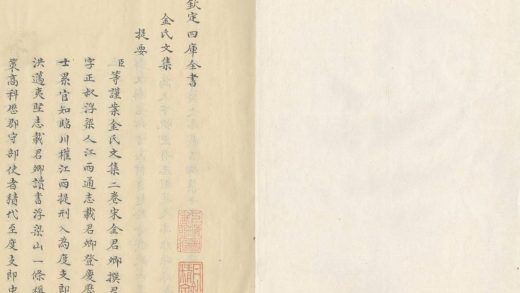 欽定四庫全書
金氏文集
提要
臣等謹案金氏文集二卷宋金君卿撰君
字正叔浮梁人江西通志載君卿登慶歷
士累官知臨川權江西提刑入為度支郎
洪邁夷堅志載君卿讀書浮梁山一條稱
策高科歷郡守部使者積代至度支郎中